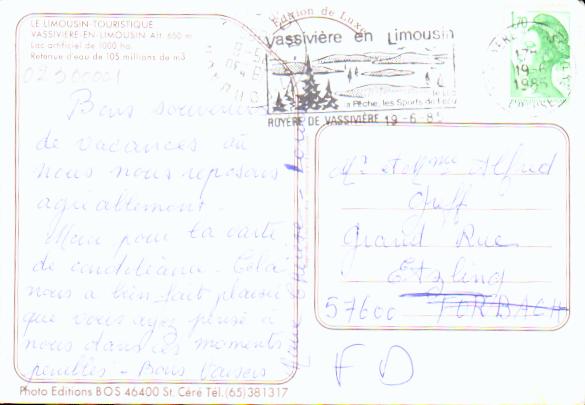 LE LIMOUSIN TOURISTIQUE
VASSIVIÈRE-EN-LIMOUSIN Alt. 650 m.
Lac artificiel de 1000 ha.
Retenue d'eau de 105 millions de m3
Edition de Luxe
Vassivière en Limousin
la Pêche, les Sports de l'eau
ROYERE DE VASSIVIÈRE 19-6-85
19-6
1985
Bons souvenirs
de vacances où
nous nous reposons
agréablement.
Merci pour la carte
de condoléance. Cela
nous a bien fait plaisir
que vous ayez pensé à
nous dans ces moments
pénibles - Bons baisers
Mr et Mme Alfred
Greff
Grand Rue
Etzling
57600 FORBACH
FD
Photo Editions BOS 46400 St. Céré Tel.(65)381317